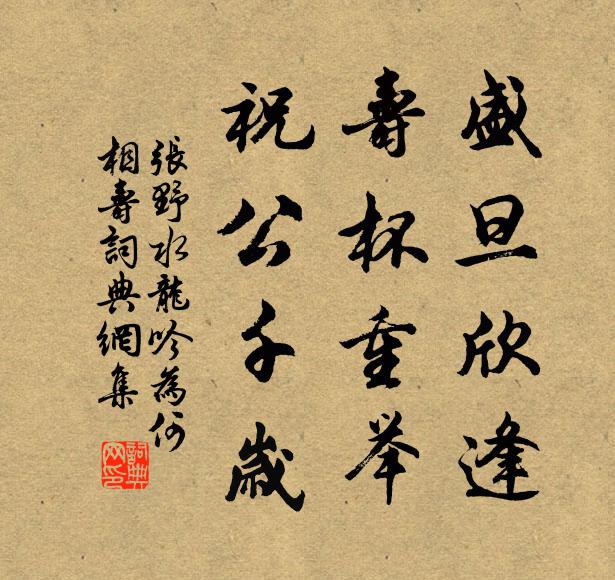 盛旦欣逢
壽杯重举
祝公千歲
張野水龍吟為何
相壽詞典網集
詞典网印